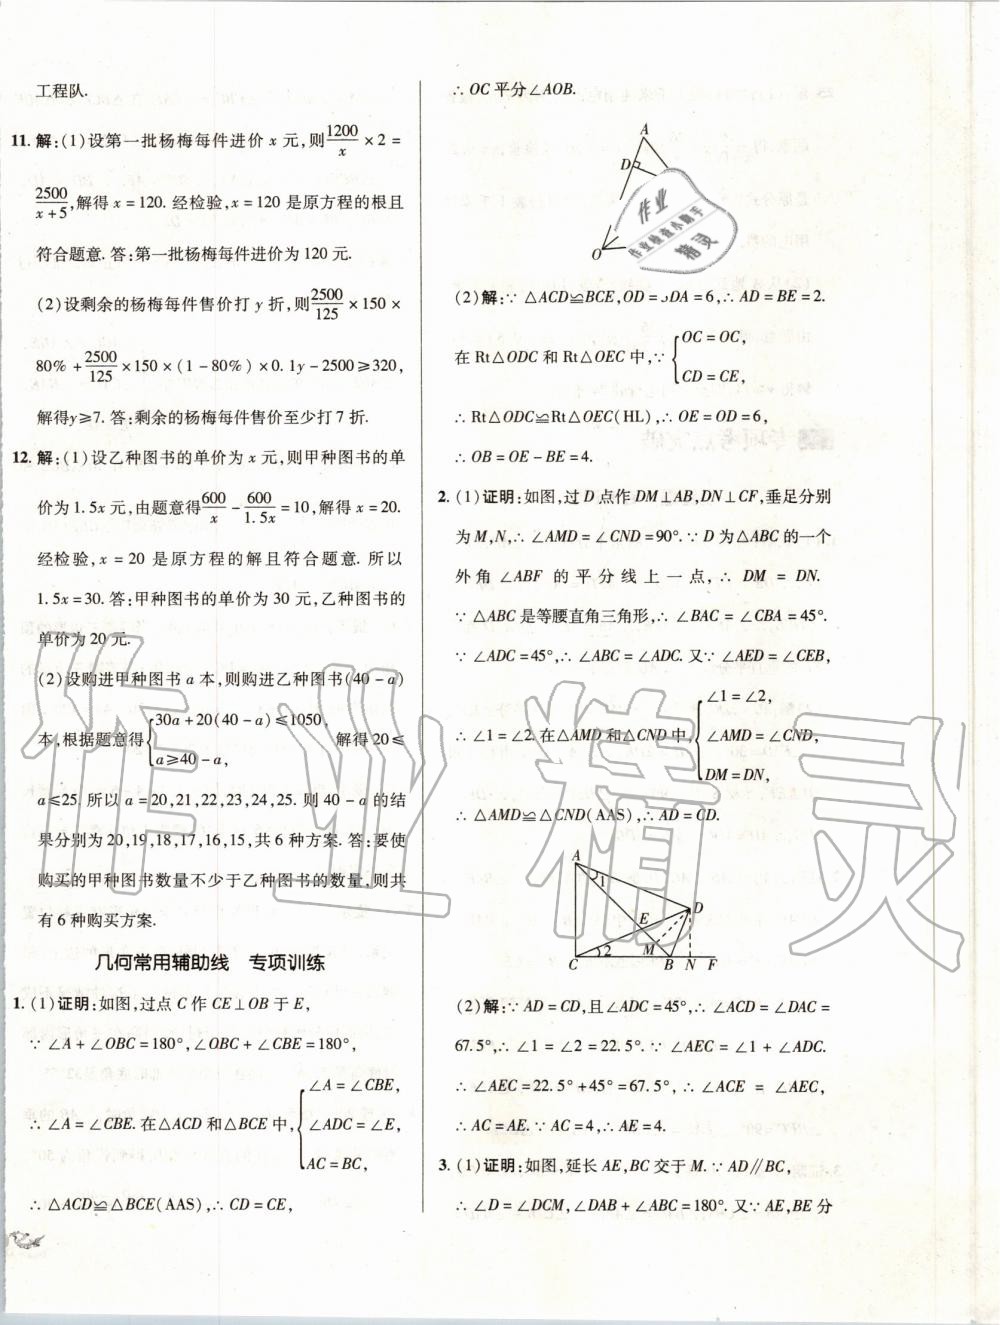 工程队.
11. 解:(1)设第一批杨梅每件进价 x 元,则1200/x × 2 =
2500/(x+5),解得 x = 120. 经检验,x = 120 是原方程的根且
符合题意. 答:第一批杨梅每件进价为 120 元.
(2)设剩余的杨梅每件售价打 y 折,则2500/125 × 150 ×
80% + 2500/125 × 150 × (1 - 80%) × 0.1y - 2500 ≥ 320,
解得y≥7. 答:剩余的杨梅每件售价至少打 7 折.
12. 解:(1)设乙种图书的单价为 x 元,则甲种图书的单
价为 1.5x 元,由题意得600/x - 600/1.5x = 10,解得 x = 20.
经检验,x = 20 是原方程的解且符合题意. 所以
1.5x = 30. 答:甲种图书的单价为 30 元,乙种图书的
单价为 20 元.
(2)设购进甲种图书 a 本,则购进乙种图书(40 - a)
本,根据题意得{30a + 20(40 - a) ≤ 1050, a ≥ 40 - a, 解得 20 ≤
a≤25. 所以 a = 20,21,22,23,24,25. 则 40 - a 的结
果分别为 20,19,18,17,16,15,共 6 种方案. 答:要使
购买的甲种图书数量不少于乙种图书的数量,则共
有 6 种购买方案.
几何常用辅助线 专项训练
1. (1)证明:如图,过点 C 作 CE⊥OB 于 E,
∵ ∠A + ∠OBC = 180°,∠OBC + ∠CBE = 180°,
∴ ∠A = ∠CBE. 在△ACD 和△BCE 中,{∠A = ∠CBE, ∠ADC = ∠E, AC = BC,
∴ △ACD≌△BCE(AAS),∴ CD = CE,
∴ OC 平分∠AOB.
A
D
O
作业
作业检查小助手
精灵
(2)解:∵ △ACD≌BCE,OD = 3DA = 6,∴ AD = BE = 2.
在 Rt△ODC 和 Rt△OEC 中,∵ {OC = OC, CD = CE,
∴ Rt△ODC≌Rt△OEC(HL),∴ OE = OD = 6,
∴ OB = OE - BE = 4.
2. (1)证明:如图,过 D 点作 DM⊥AB,DN⊥CF,垂足分别
为 M,N,∴ ∠AMD = ∠CND = 90°. ∵ D 为△ABC 的一个
外角∠ABF 的平分线上一点,∴ DM = DN.
∵ △ABC 是等腰直角三角形,∴ ∠BAC = ∠CBA = 45°.
∵ ∠ADC = 45°,∴ ∠ABC = ∠ADC. 又∵ ∠AED = ∠CEB,
∴ ∠1 = ∠2. 在△AMD 和△CND 中,{∠1 = ∠2, ∠AMD = ∠CND, DM = DN,
∴ △AMD≌△CND(AAS),∴ AD = CD.
A
1
E
D
M
2
C B N F
(2)解:∵ AD = CD,且∠ADC = 45°,∴ ∠ACD = ∠DAC =
67.5°,∴ ∠1 = ∠2 = 22.5°. ∵ ∠AEC = ∠1 + ∠ADC.
∴ ∠AEC = 22.5° + 45° = 67.5°,∴ ∠ACE = ∠AEC,
∴ AC = AE. ∵ AC = 4,∴ AE = 4.
3. (1)证明:如图,延长 AE,BC 交于 M. ∵ AD∥BC,
∴ ∠D = ∠DCM,∠DAB + ∠ABC = 180°. 又∵ AE,BE 分
作业精灵